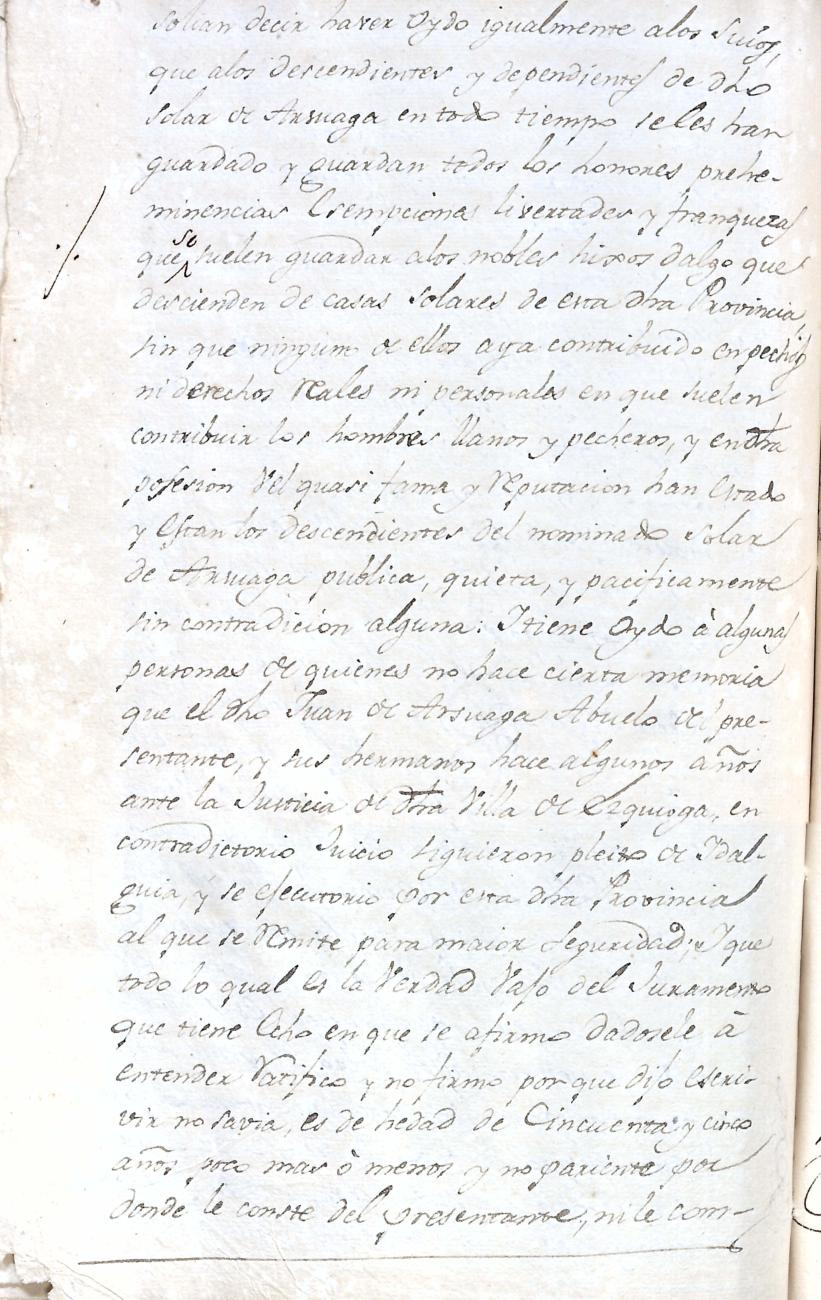 solian decir haver oydo igualmente alos suios,
que alos descendientes y dependientes de dho
solar de Arsuaga en todo tiempo se les han
guardado y guardan todos los honores prehe-
minencias Esempciones livertades y franquezas
·/. que so suelen guardar alos nobles hixos dalgo que
descienden de casas solares de esta dha Provincia,
sin que ninguno de ellos aya contribuido en pechos
ni derechos Reales ni personales en que suelen
contribuir los hombres llanos y pecheros, y en dha
posesion Vel quasi fama y Reputacion han Estado
y Estan los descendientes del nominado solar
de Arsuaga publica, quieta, y pacificamente
sin contradicion alguna: Itiene Oydo à algunas
personas de quienes no hace cierta memoria
que el dho Juan de Arsuaga Abuelo del pre-
sentante, y sus hermanos hace algunos años
ante la Justicia de dha Villa de Ezquioga, en
contradictorio Juicio siguieron pleito de Idal-
guia, y se executorio por esta dha Provincia
al que se Remite para maior seguridad; I que
todo lo qual es la Verdad Vaso del Juramento
que tiene Echo en que se afirmo dadosele à
entender Ratifico y no firmo por que dijo escri-
vir no savia, es de hedad de Cincuenta y cinco
años poco mas ò menos y no pariente por
donde le conste del presentante, ni le com-